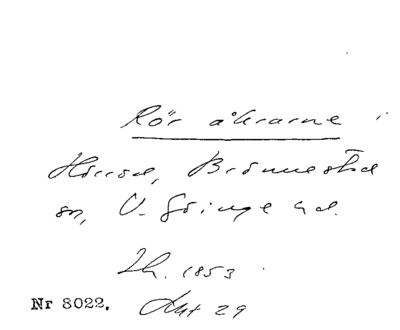 Rör åkrarne i
Hörröd, Brönnestad
sn, V. Göinge hd.
Lh. 1853
Nr 8022. Akt 29